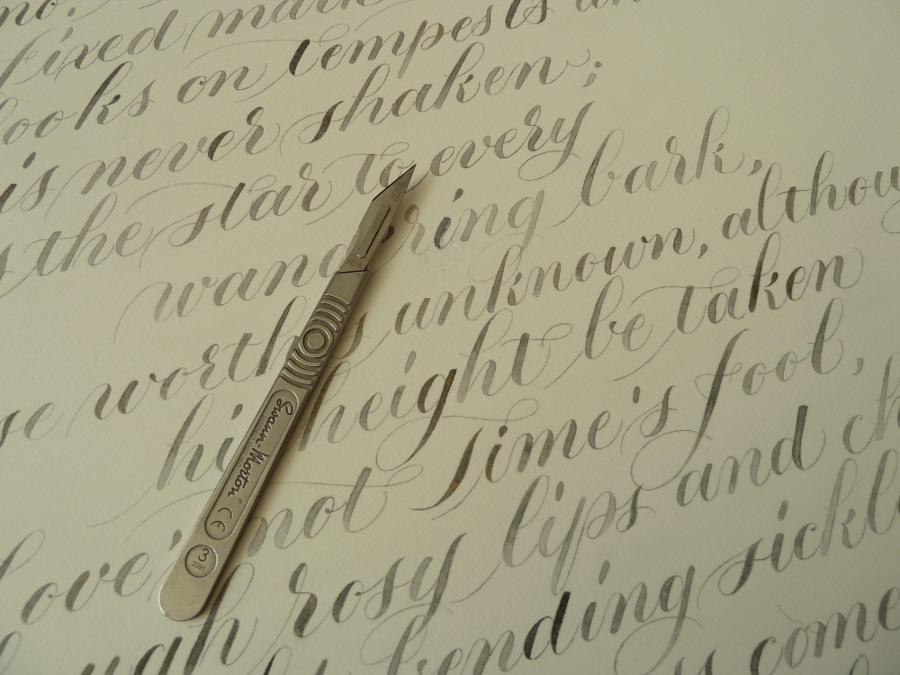 fixed mark
looks on tempests
is never shaken;
the star to every
wandering bark,
worth's unknown, althou
his height be taken
love's not Time's fool,
rosy lips and
bending sickle
come
Swann-Morton
CE
3